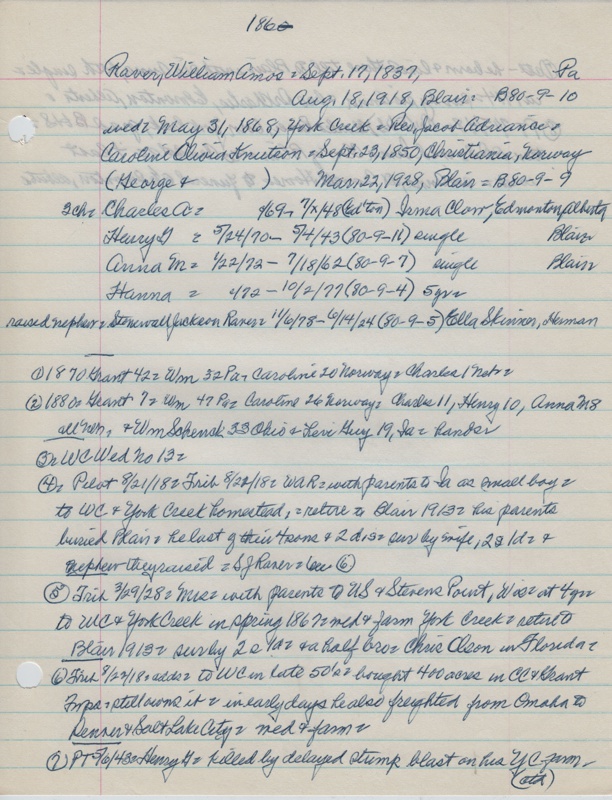 1860
Raver, William Amos = Sept. 17, 1837, Pa
Aug. 18, 1918, Blair = B80-9-10
wed = May 31, 1868, York Creek = Rev. Jacob Adriance =
Caroline Olivia Knutson = Sept. 23, 1850, Christiania, Norway
(George & ) Mar. 22, 1928, Blair = B80-9-9
3ch = Charles A = 4/69 - 7/x/48 (Ed'ton) Irma Clow, Edmonton, Alberta
Henry G = 5/24/70 - 5/4/43 (80-9-11) single Blair
Anna M = 1/22/72 - 7/18/62 (80-9-7) single Blair
Hanna = 4/72 - 10/2/77 (80-9-4) 5yr =
raised nephew = Stonewall Jackson Raver = 11/6/78 - 6/14/24 (80-9-5) Ella Skinner, Herman
① 1870 Grant 42 = Wm 32 Pa, Caroline 20 Norway = Charles 1 Neb =
② 1880 = Grant 7 = Wm 47 Pa = Caroline 26 Norway = Charles 11, Henry 10, Anna M 8
all Neb, & Wm Schenck 33 Ohio & Levi Guy 19, Ia =
③ WC Wed No 13 =
④ = Pilot 8/21/18 = Trib 8/22/18 = WAR = with parents to Ia as small boy =
to WC & York Creek homestead, = retire to Blair 1913 = his parents
buried Blair = he last of their 4 sons & 2 d's = sur by wife, 2s 1d = &
nephew they raised = S J Raver = (see ⑥)
⑤ Trib 3/29/28 = Mrs = with parents to US & Stevens Point, Wis = at 4yr
to WC & York Creek in spring 1867 = wed & farm York Creek = retire to
Blair 1913 = sur by 2s 1d = & a half bro = Chris Olson in Florida =
⑥ Trib 8/22/18 = adds = to WC in late 50's = bought 400 acres in CC & Grant
Twps = still owns it = in early days he also freighted from Omaha to
Denver & Salt Lake City = wed & farm =
⑦ PT 5/6/43 = Henry G = killed by delayed stump blast on his YC farm =
(ctd)